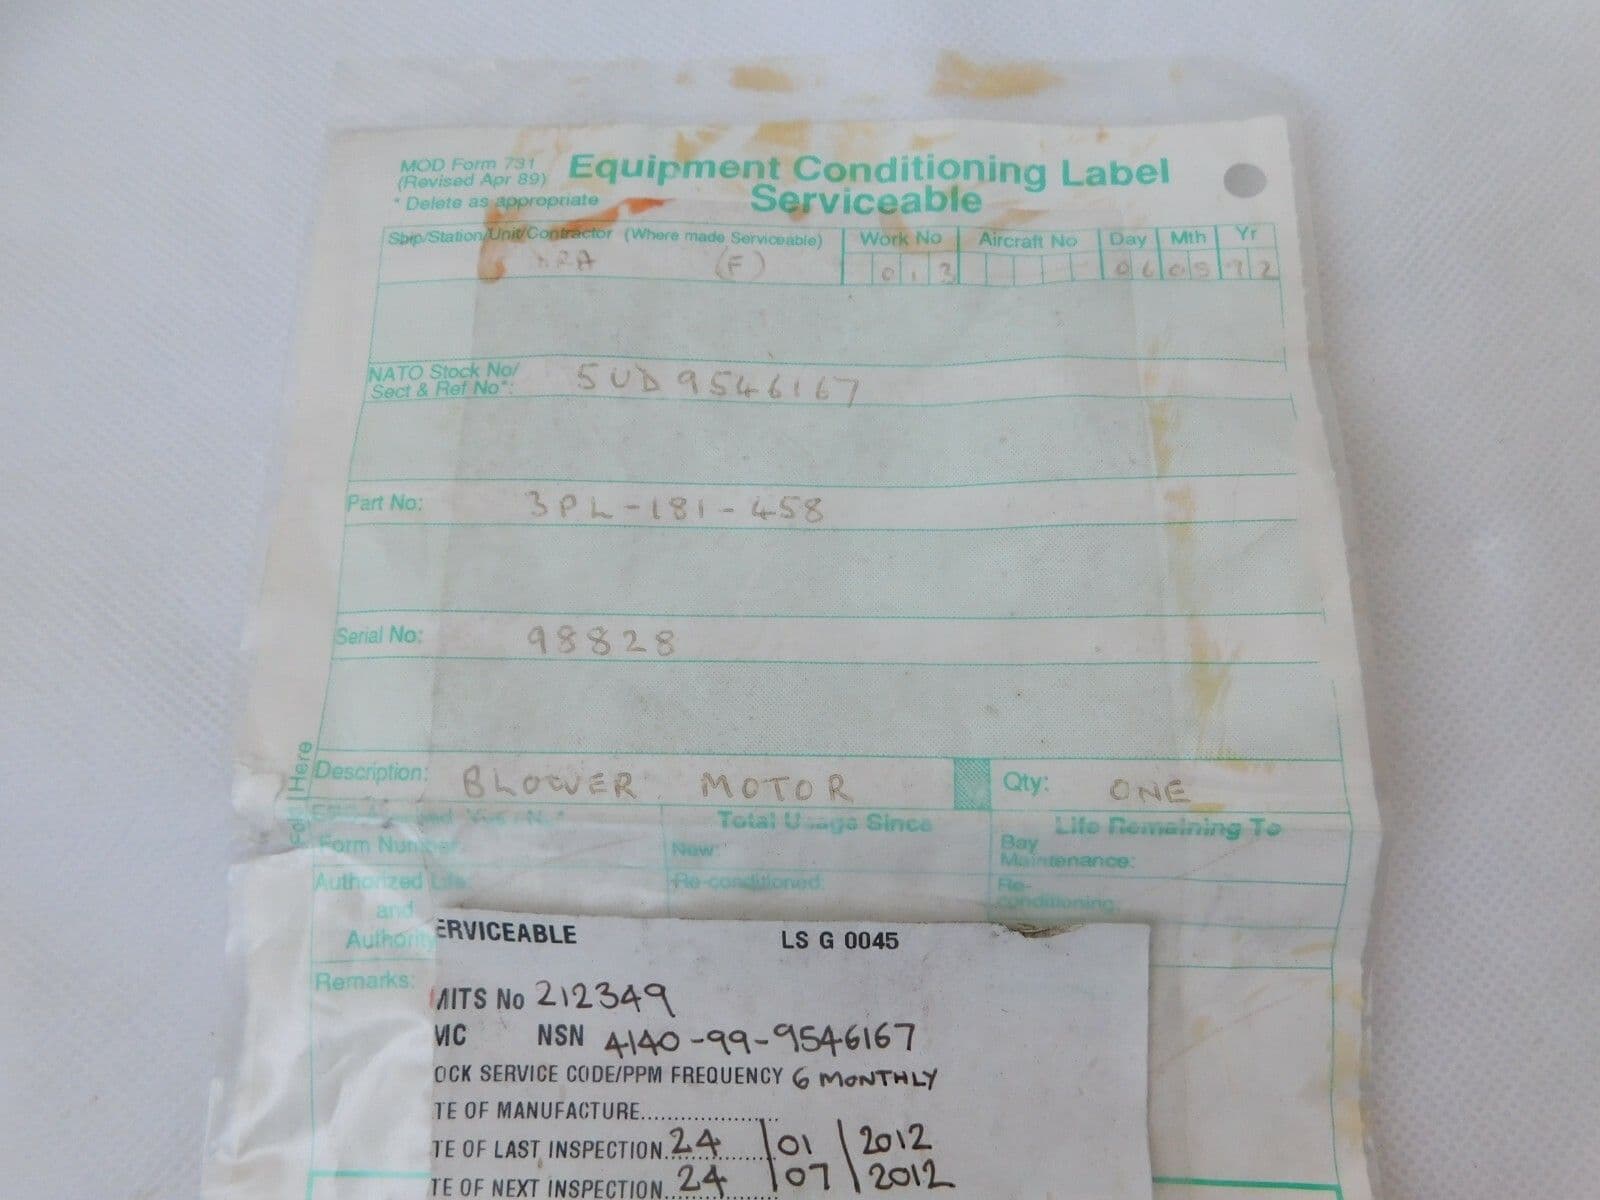 MOD Form 731
(Revised Apr 89)
* Delete as appropriate
Equipment Conditioning Label
Serviceable
Ship/Station/Unit/Contractor (Where made Serviceable)
Work No
Aircraft No
Day
Mth
Yr
(F)
013
06
05
92
NATO Stock No/
Sect & Ref No*:
5UD 9546167
Part No:
3PL-181-458
Serial No:
98828
Fold Here
Description:
BLOWER MOTOR
Qty:
ONE
Total Usage Since
Life Remaining To
Form Number
New:
Bay
Maintenance:
Authorized Life
and
Authority
Re-conditioned:
Re-
conditioning:
Remarks:
ERVICEABLE
LS G 0045
MITS No 212349
MC NSN 4140-99-9546167
OCK SERVICE CODE/PPM FREQUENCY 6 MONTHLY
TE OF MANUFACTURE
TE OF LAST INSPECTION 24/01/2012
TE OF NEXT INSPECTION 24/07/2012